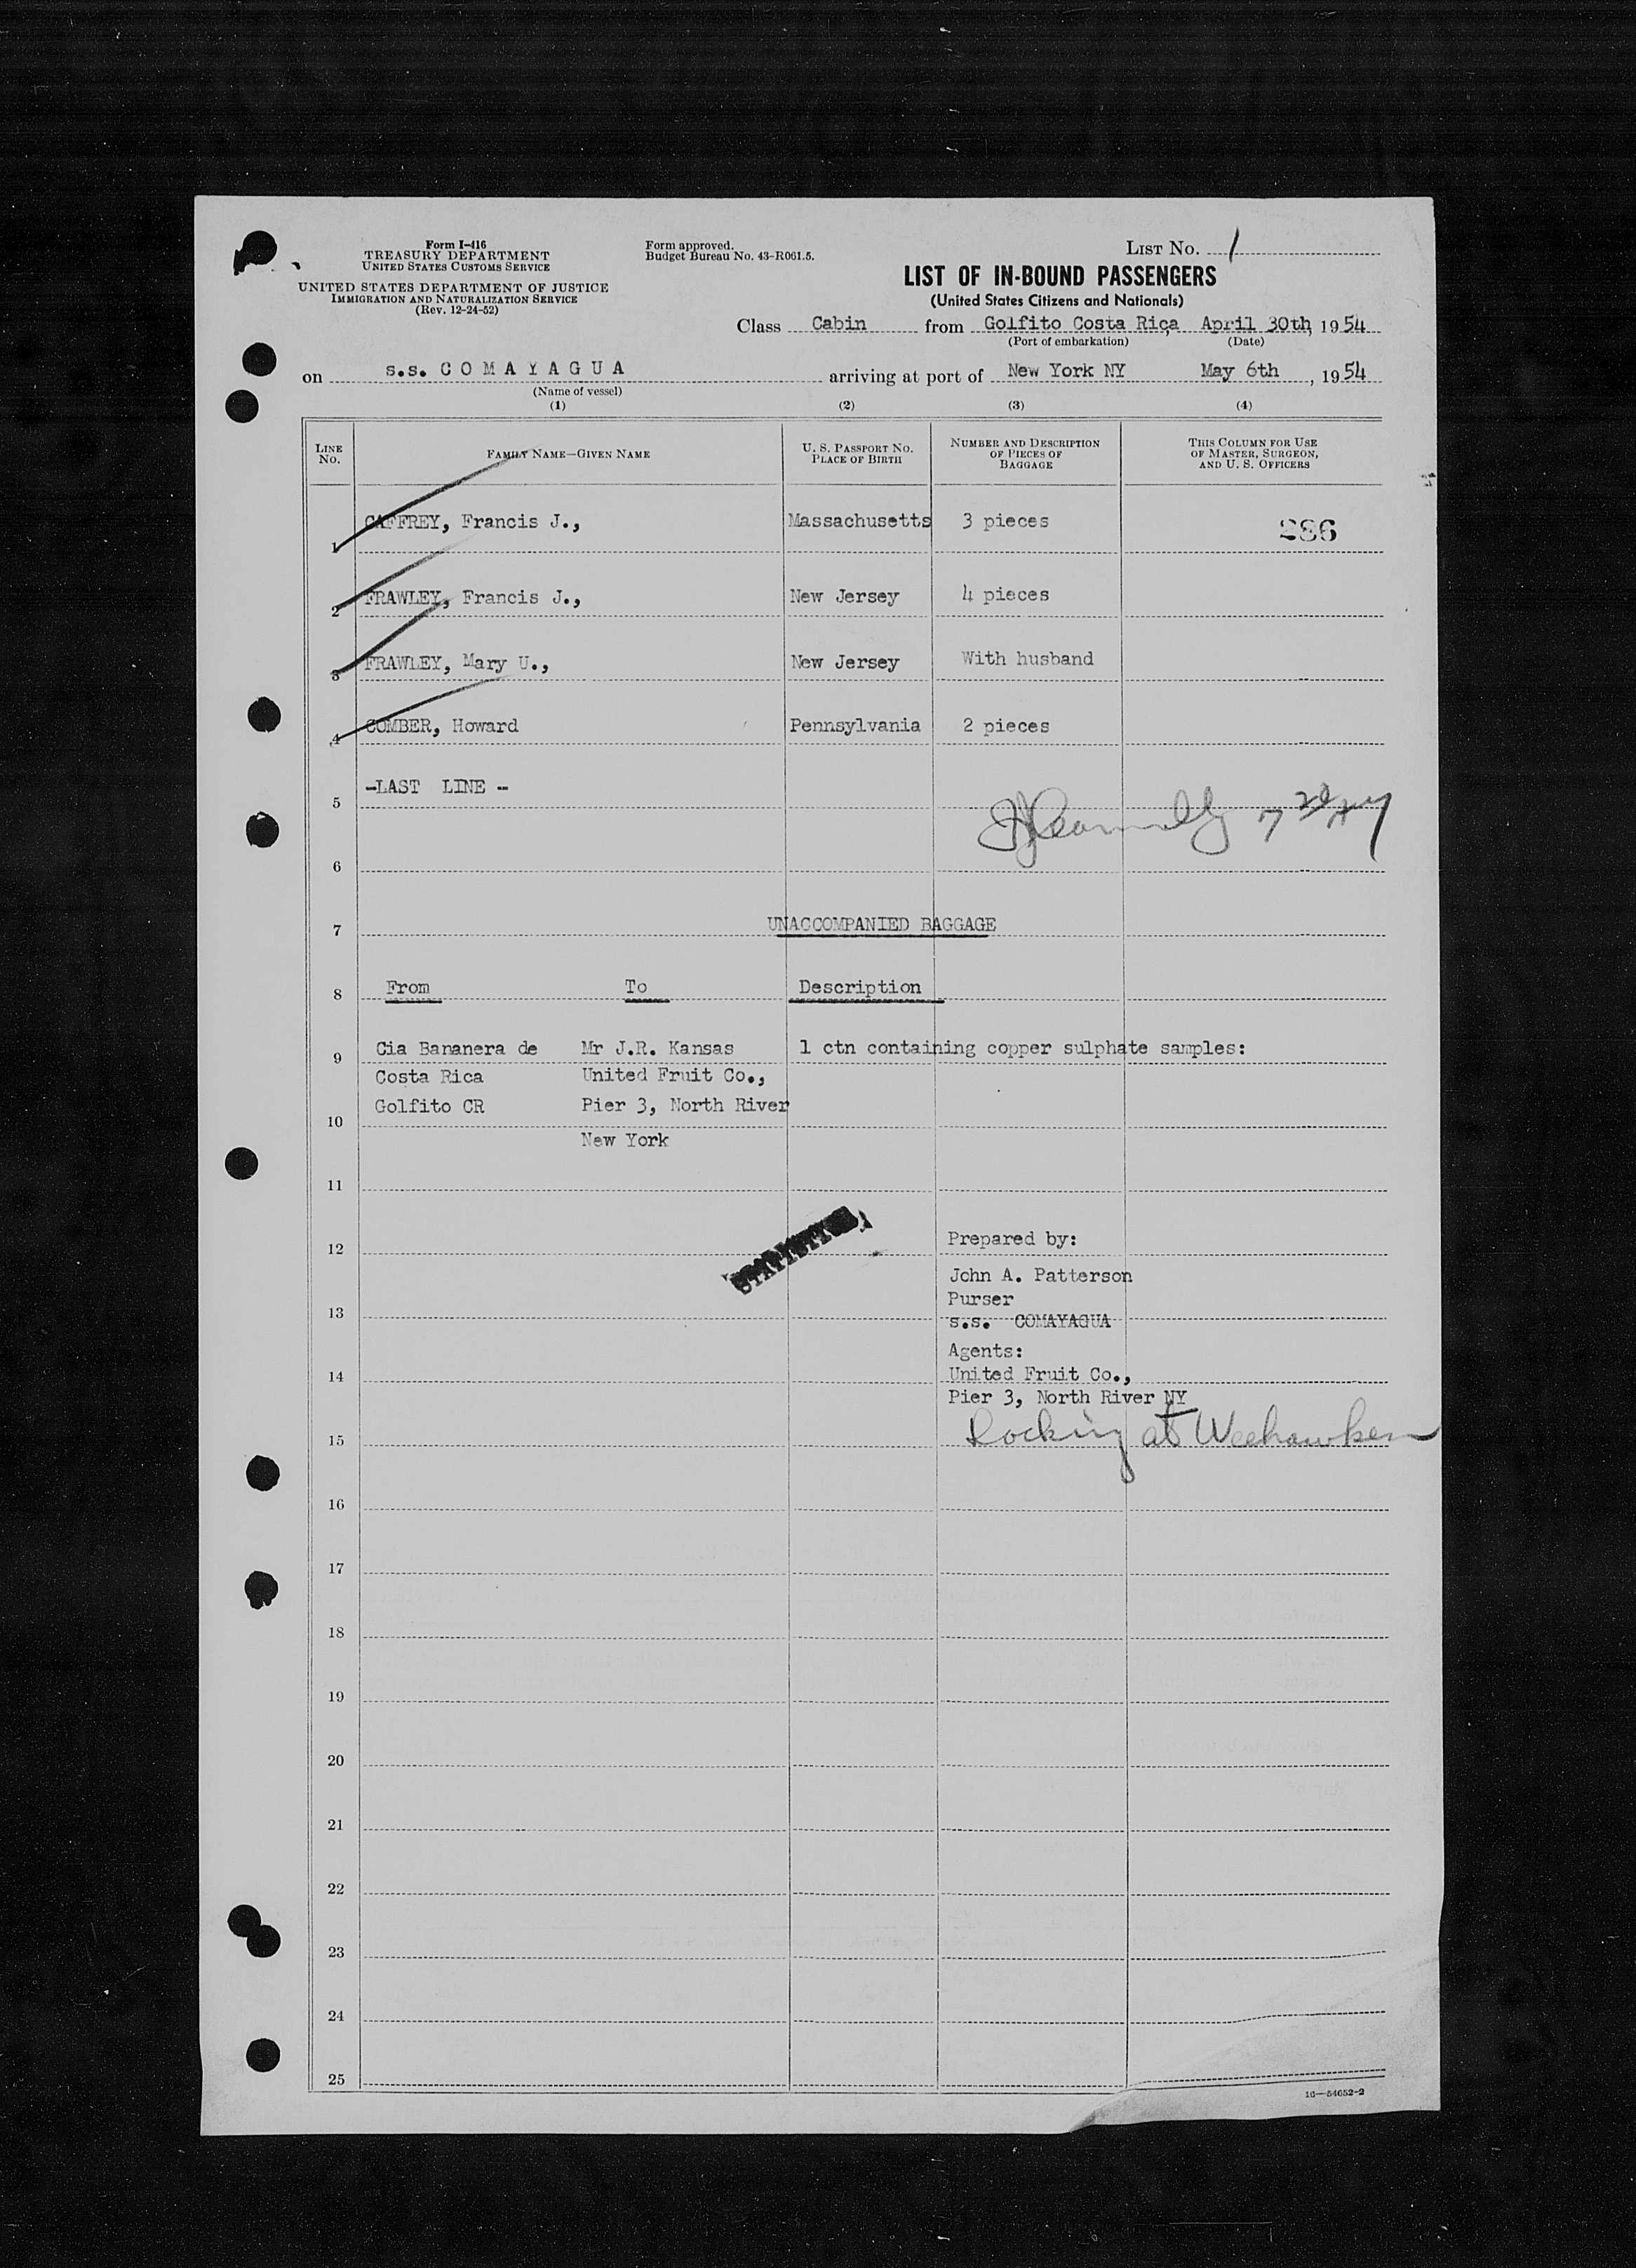 Form I-416
TREASURY DEPARTMENT
UNITED STATES CUSTOMS SERVICE
UNITED STATES DEPARTMENT OF JUSTICE
IMMIGRATION AND NATURALIZATION SERVICE
(Rev. 12-24-52)
Form approved.
Budget Bureau No. 43-R061.5.
LIST No. 1
LIST OF IN-BOUND PASSENGERS
(United States Citizens and Nationals)
Class Cabin from Golfito Costa Rica, April 30th, 1954
(Port of embarkation) (Date)
on s.s. COMAYAGUA arriving at port of New York NY May 6th, 1954
(Name of vessel)
(1) (2) (3) (4)
LINE No. FAMILY NAME—GIVEN NAME U. S. PASSPORT No. PLACE OF BIRTH NUMBER AND DESCRIPTION OF PIECES OF BAGGAGE THIS COLUMN FOR USE OF MASTER, SURGEON, AND U. S. OFFICERS
1 CAFFREY, Francis J., Massachusetts 3 pieces 286
2 FRAWLEY, Francis J., New Jersey 4 pieces
3 FRAWLEY, Mary U., New Jersey With husband
4 COMBER, Howard Pennsylvania 2 pieces
5 -LAST LINE -
6
7 UNACCOMPANIED BAGGAGE
8 From To Description
9 Cia Bananera de Mr J.R. Kansas 1 ctn containing copper sulphate samples:
Costa Rica United Fruit Co.,
10 Golfito CR Pier 3, North River
New York
11
12 Prepared by:
John A. Patterson
Purser
13 s.s. COMAYAGUA
Agents:
14 United Fruit Co.,
Pier 3, North River NY
15 Docking at Weehawken
16
17
18
19
20
21
22
23
24
25
16—54652-2